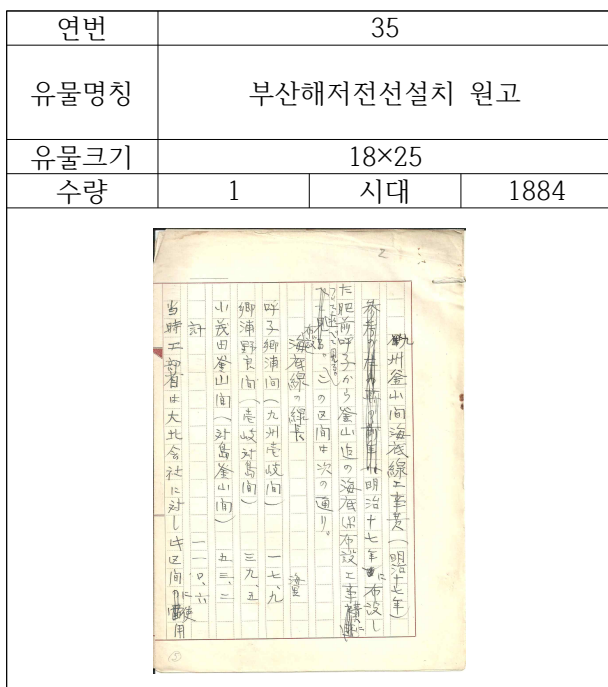 연번 35
유물명칭 부산해저전선설치 원고
유물크기 18×25
수량 1 시대 1884
2
九州釜山間海底線工事費(明治十七年)
明治十七年に布設し
た肥前呼子から釜山迄の海底線布設工事
この区間は次の通り。
海底線の線長 海里
呼子郷浦間(九州壱岐間) 一七、九
郷浦野良間(壱岐対島間) 三九、五
小茂田釜山間(対島釜山間) 五三、二
計 一一〇、六
当時工部省は大北会社に対し此区間に使用